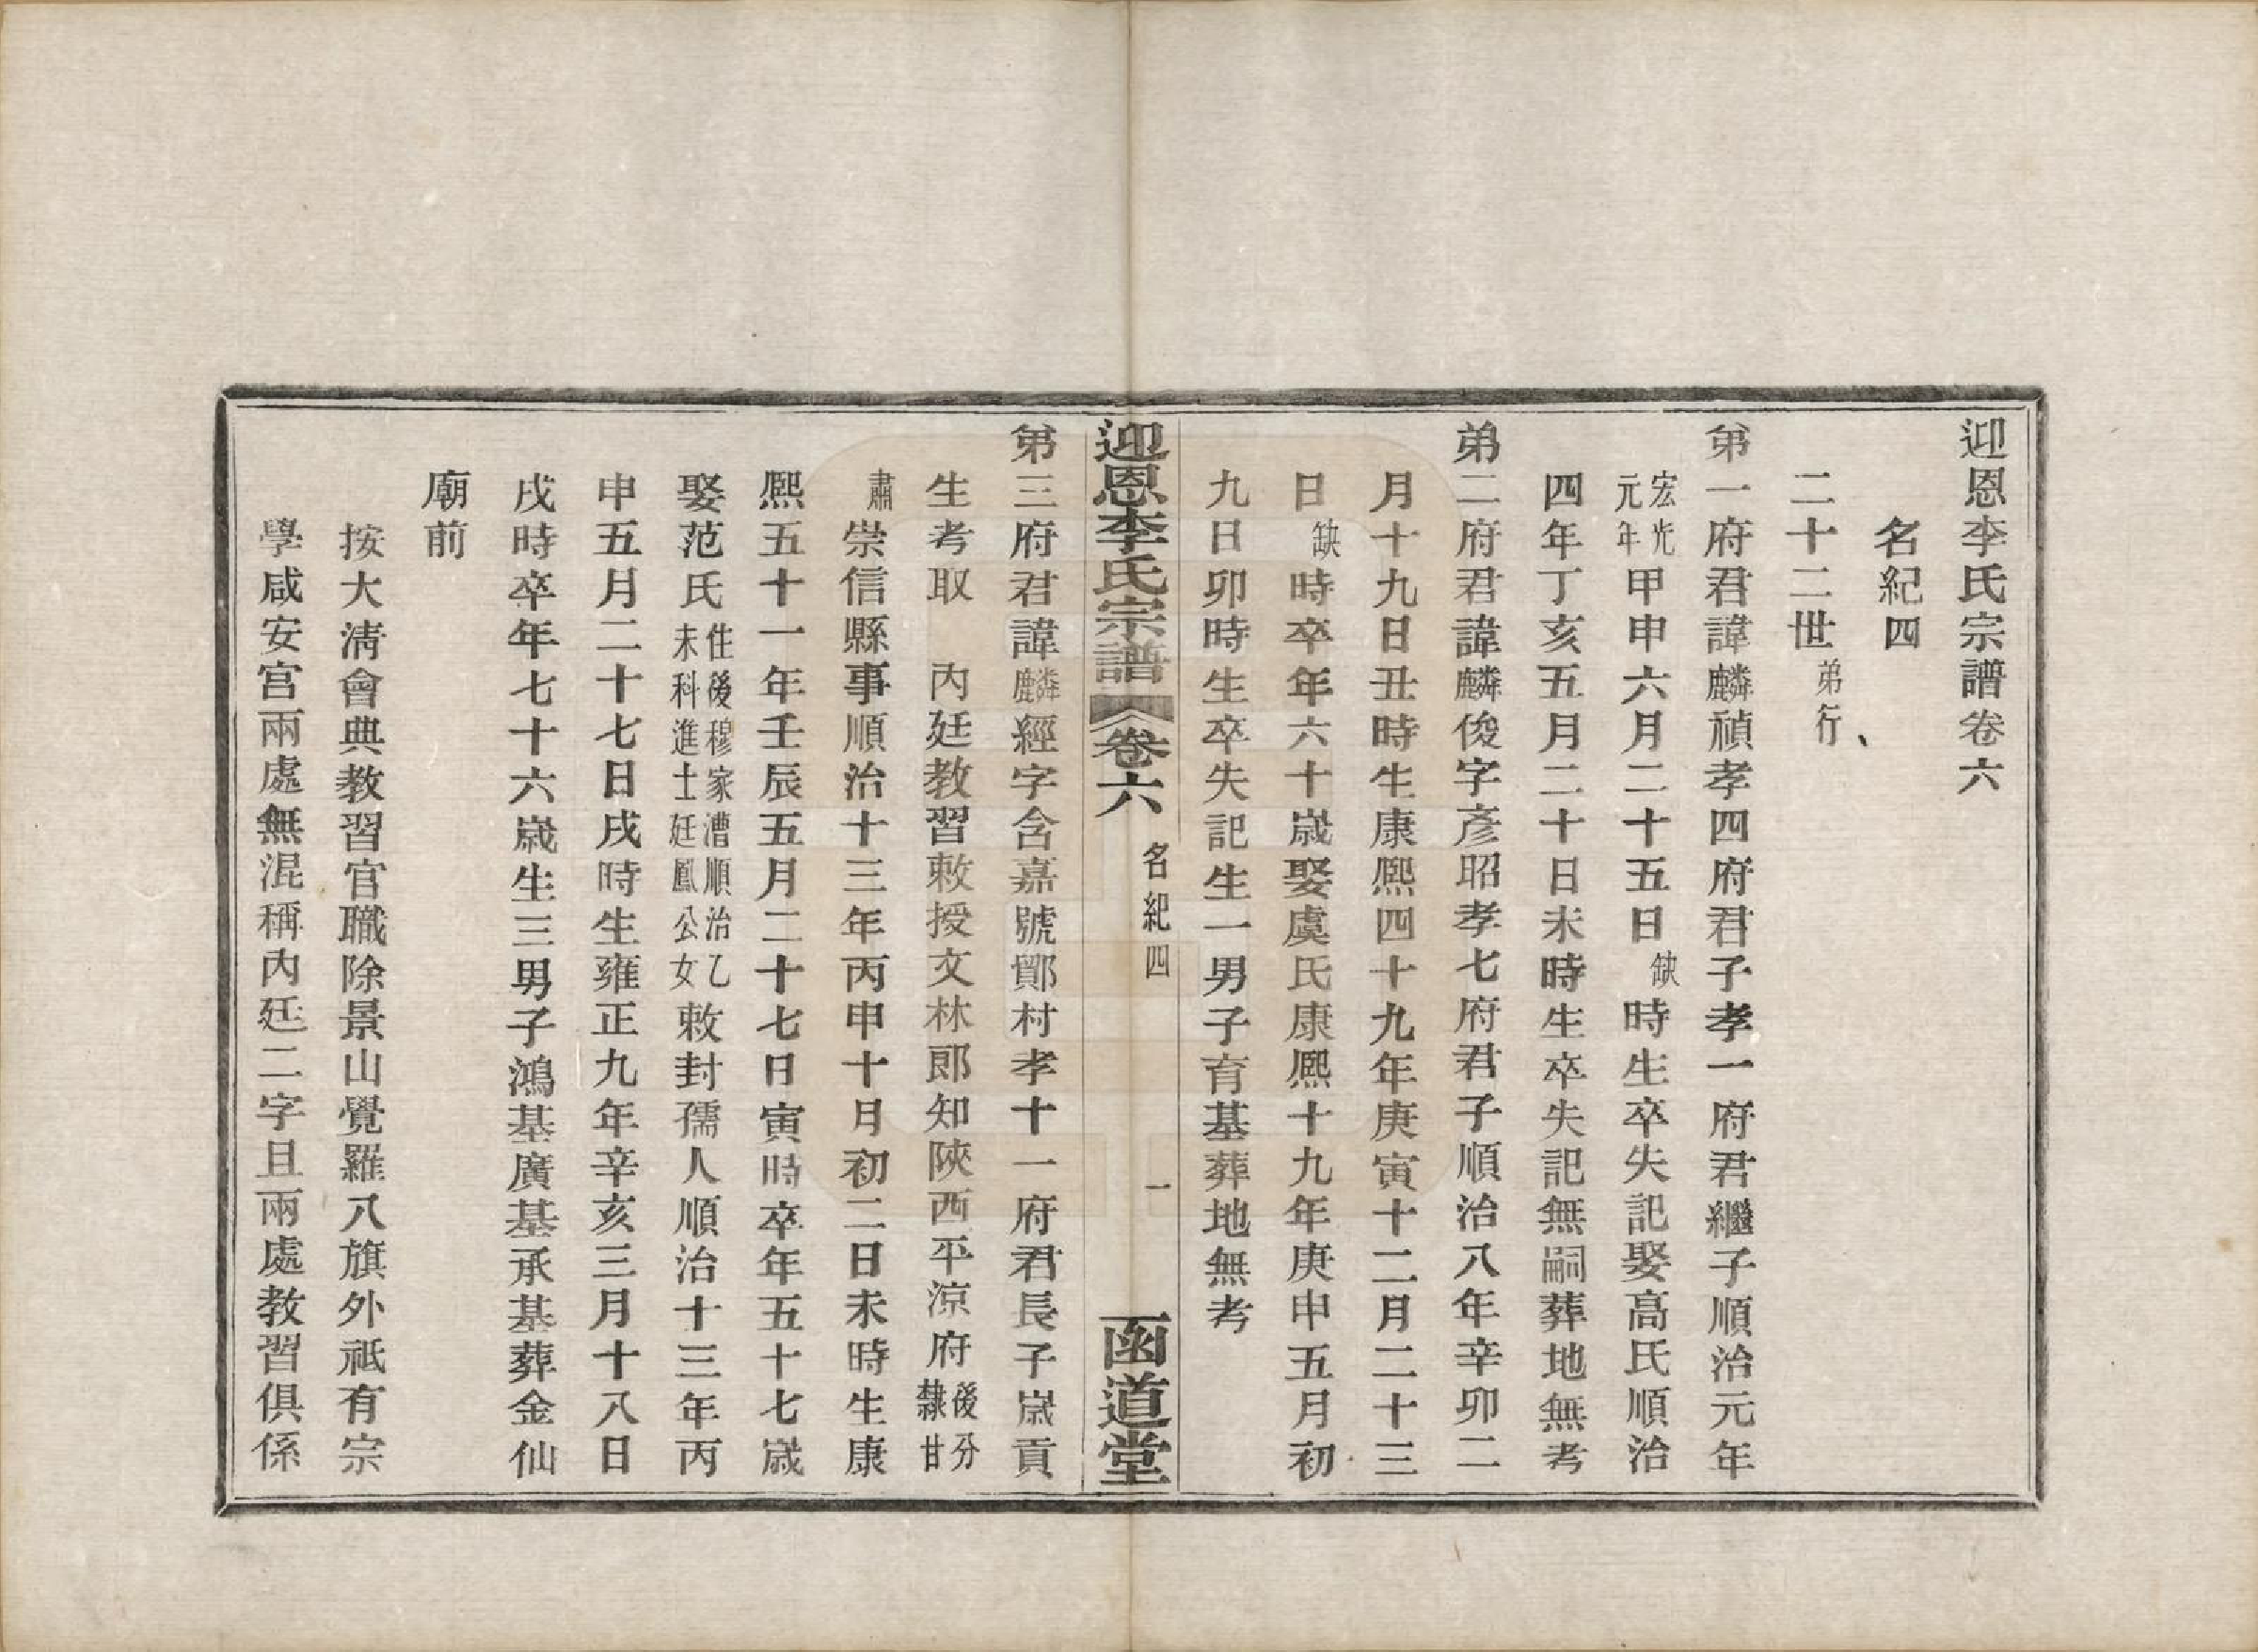 迎恩李氏宗譜卷六
名紀四
二十二世弟行、
第一府君諱麟禎孝四府君子孝一府君繼子順治元年
宏光元年甲申六月二十五日缺時生卒失記娶高氏順治
四年丁亥五月二十日未時生卒失記無嗣葬地無考
弟二府君諱麟俊字彥昭孝七府君子順治八年辛卯二
月十九日丑時生康熙四十九年庚寅十二月二十三
日缺時卒年六十歲娶虞氏康熙十九年庚申五月初
九日卯時生卒失記生一男子育基葬地無考
迎恩李氏宗譜 卷六 名紀四 一 函道堂
第三府君諱麟經字含嘉號鄮村孝十一府君長子歲貢
生考取 內廷教習敕授文林郎知陝西平涼府後分隸甘
肅崇信縣事順治十三年丙申十月初二日未時生康
熙五十一年壬辰五月二十七日寅時卒年五十七歲
娶范氏住後穆家漕順治乙未科進士廷鳳公女敕封孺人順治十三年丙
申五月二十七日戌時生雍正九年辛亥三月十八日
戌時卒年七十六歲生三男子鴻基廣基承基葬金仙
廟前
按大淸會典教習官職除景山覺羅八旗外祇有宗
學咸安宮兩處無混稱內廷二字且兩處教習俱係